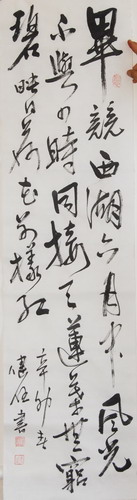 畢競西湖六月中風光
不與四時同接天蓮葉無窮
碧映日荷花别樣紅
辛卯春
書